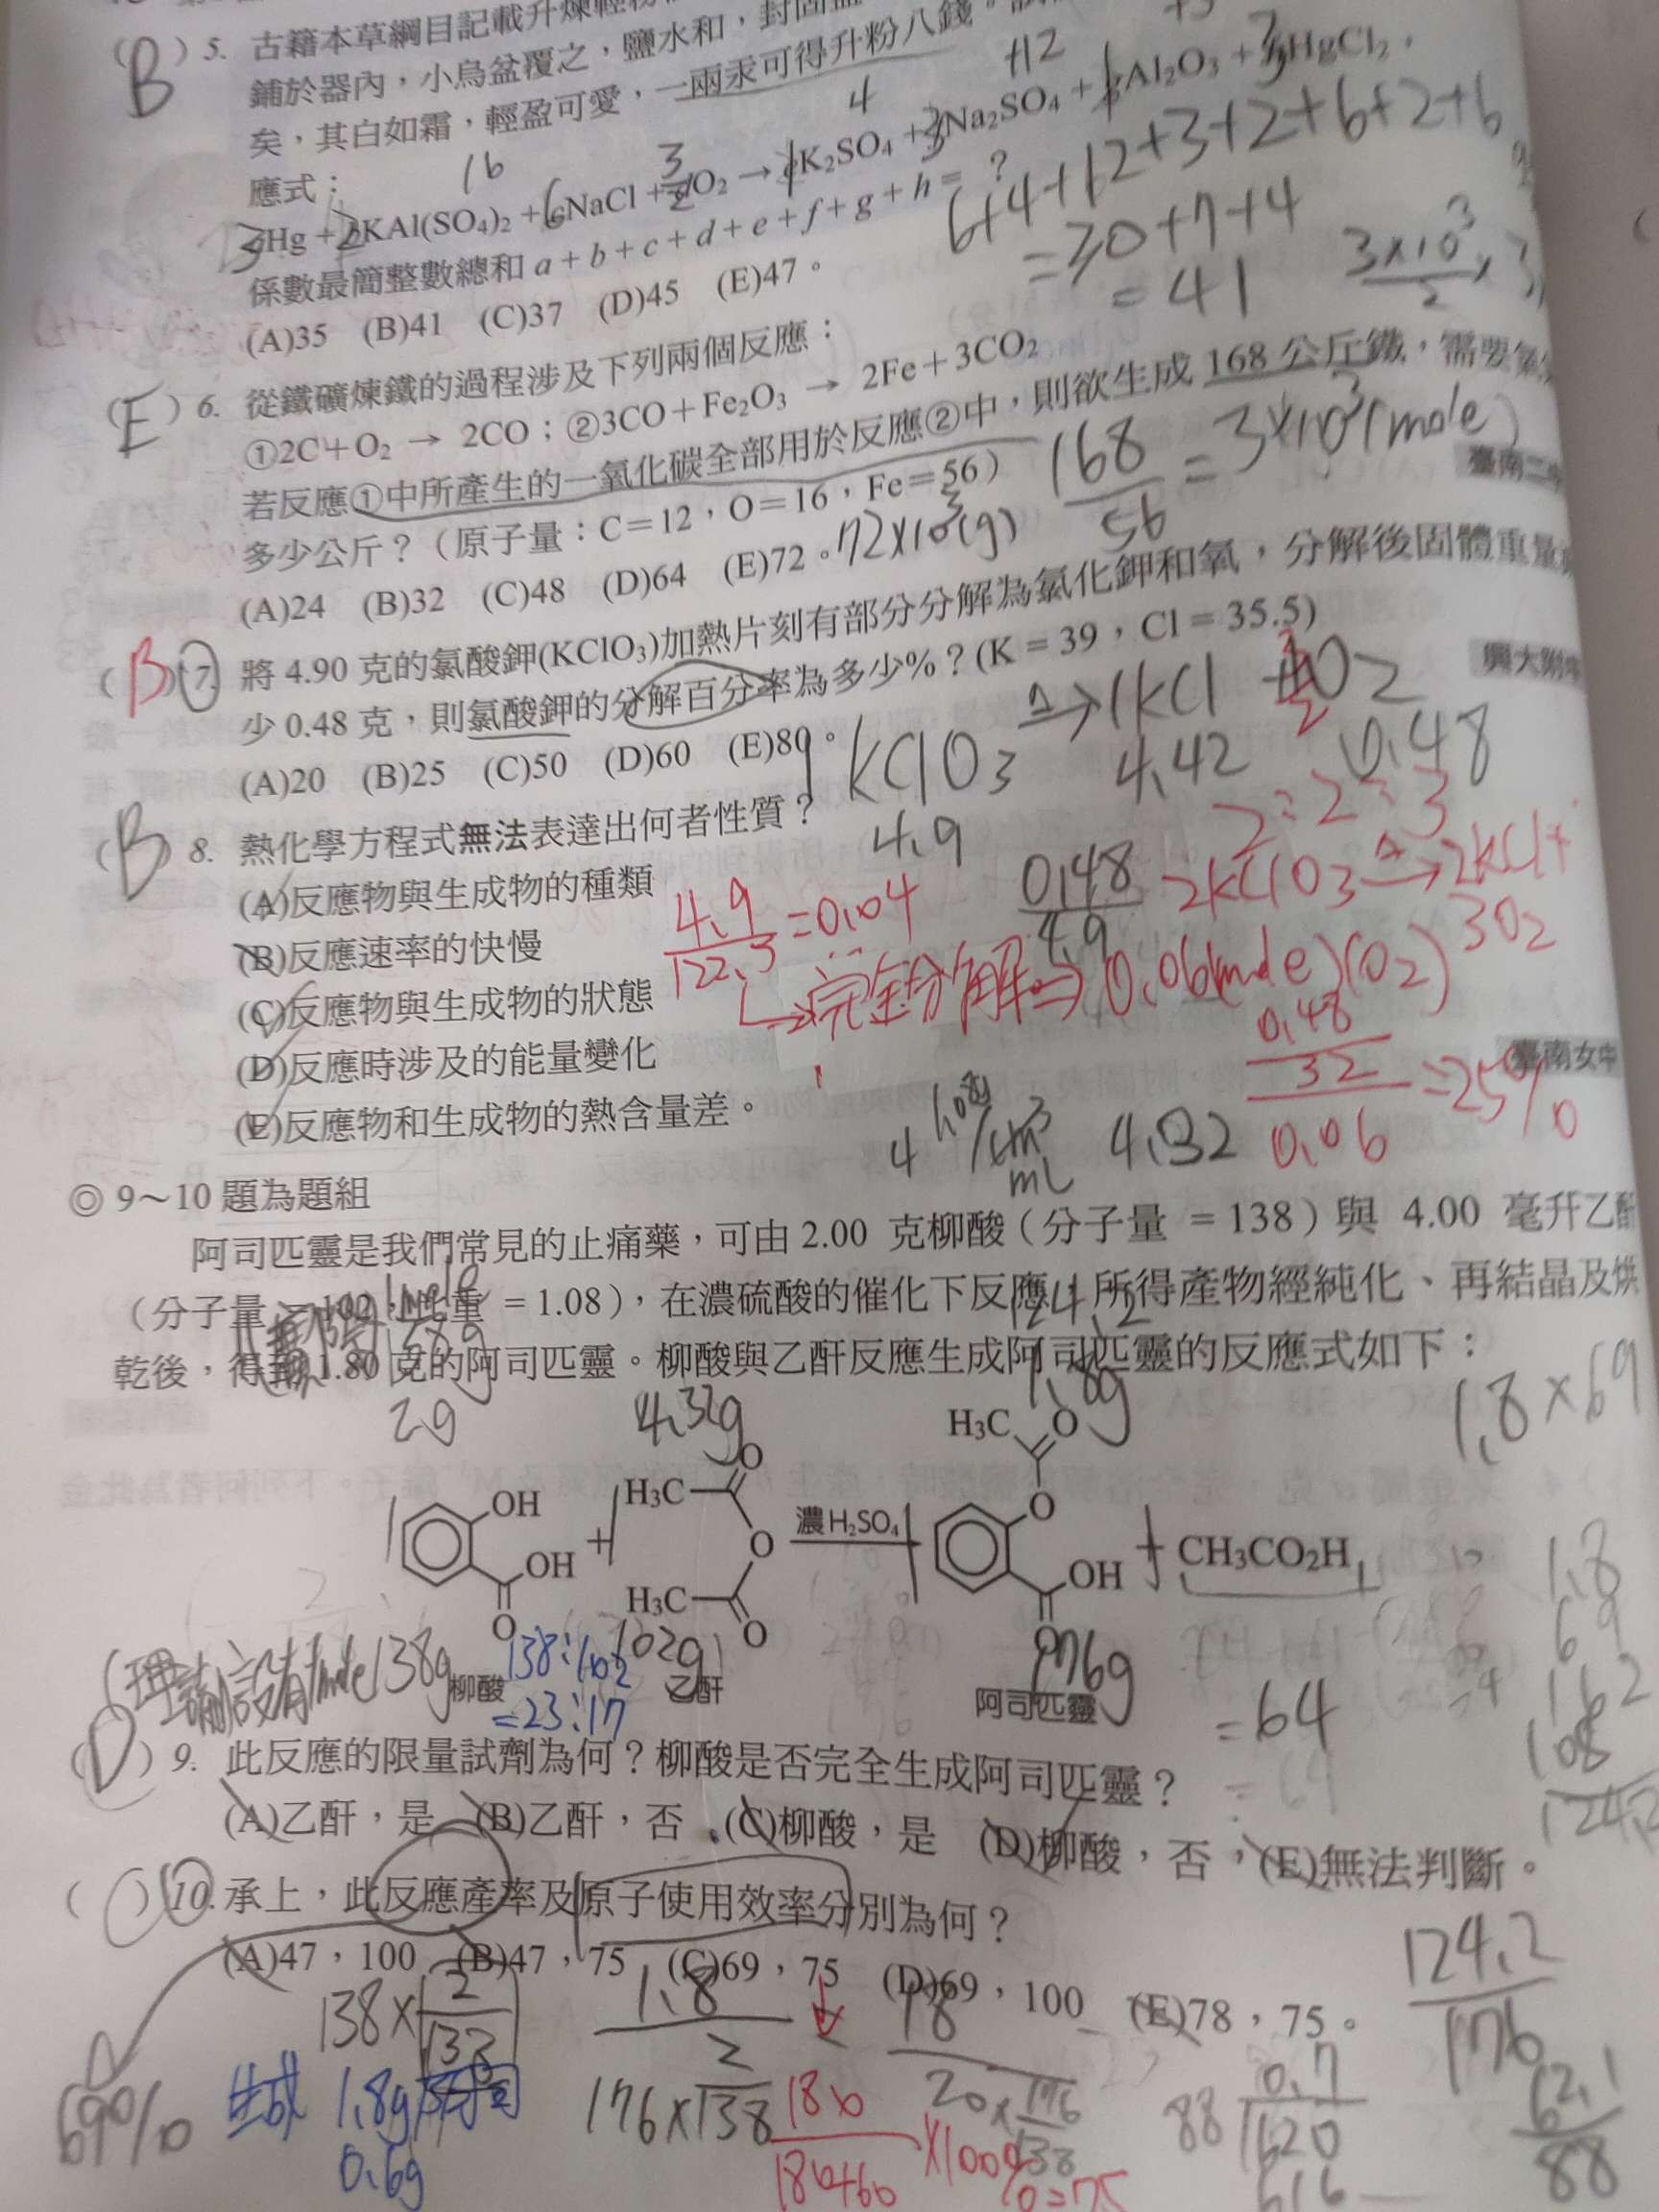 (B) 5. 古籍本草綱目記載升煉輕粉
鋪於器內，小烏盆覆之，鹽水和，封固盆
矣，其白如霜，輕盈可愛，一兩汞可得升粉八錢。
應式：
Hg + KAl(SO₄)₂ + NaCl + O₂ → K₂SO₄ + Na₂SO₄ + Al₂O₃ + HgCl₂，
係數最簡整數總和 a + b + c + d + e + f + g + h = ?
(A)35 (B)41 (C)37 (D)45 (E)47。
16
4
+12
6+4+12+3+2+6+2+6
=30+7+4
=41
(E) 6. 從鐵礦煉鐵的過程涉及下列兩個反應：
①2C＋O₂ → 2CO；②3CO＋Fe₂O₃ → 2Fe＋3CO₂
若反應①中所產生的一氧化碳全部用於反應②中，則欲生成 168 公斤鐵，需要氧氣
多少公斤？（原子量：C＝12，O＝16，Fe＝56）
(A)24 (B)32 (C)48 (D)64 (E)72。
72×10³(g)
168/56 = 3×10³(mole)
臺南二中
(B) 7. 將 4.90 克的氯酸鉀(KClO₃)加熱片刻有部分分解為氯化鉀和氧，分解後固體重量減
少 0.48 克，則氯酸鉀的分解百分率為多少%？(K = 39，Cl = 35.5)
(A)20 (B)25 (C)50 (D)60 (E)80。
興大附中
1KClO₃ △→ 1KCl + 3/2 O₂
4.9 4.42 0.48
2：2：3
0.48/4.9
2KClO₃ △→ 2KCl+
3O₂
4.9/122.5 = 0.04
完全分解⇒ 0.06(mole)(O₂)
0.48/32
/0.06 = 25%
(B) 8. 熱化學方程式無法表達出何者性質？
(A)反應物與生成物的種類
(B)反應速率的快慢
(C)反應物與生成物的狀態
(D)反應時涉及的能量變化
(E)反應物和生成物的熱含量差。
臺南女中
4 1.08g/cm³
mL
4.32
◎ 9～10 題為題組
阿司匹靈是我們常見的止痛藥，可由 2.00 克柳酸（分子量 = 138）與 4.00 毫升乙酐
（分子量 = 102，比重 = 1.08），在濃硫酸的催化下反應，所得產物經純化、再結晶及烘
乾後，得到 1.80 克的阿司匹靈。柳酸與乙酐反應生成阿司匹靈的反應式如下：
124.2
1.8×69
2g 4.32g 1.8g
OH OH O
H₃C O O H₃C O
濃H₂SO₄
H₃C O O OH O
CH₃CO₂H
138g 柳酸
102g 乙酐
176g 阿司匹靈
138：102
=23：17
=64
1.8
69
162
108
124.2
(D) 9. 此反應的限量試劑為何？柳酸是否完全生成阿司匹靈？
(A)乙酐，是 (B)乙酐，否 (C)柳酸，是 (D)柳酸，否，(E)無法判斷。
( ) 10. 承上，此反應產率及原子使用效率分別為何？
(A)47，100 (B)47，75 (C)69，75 (D)69，100 (E)78，75。
69%
生成 1.8g
0.6g
1.8
176×2/138
180
180+60 ×100%=75
124.2/176
62.1/88
0.7
88 620
616